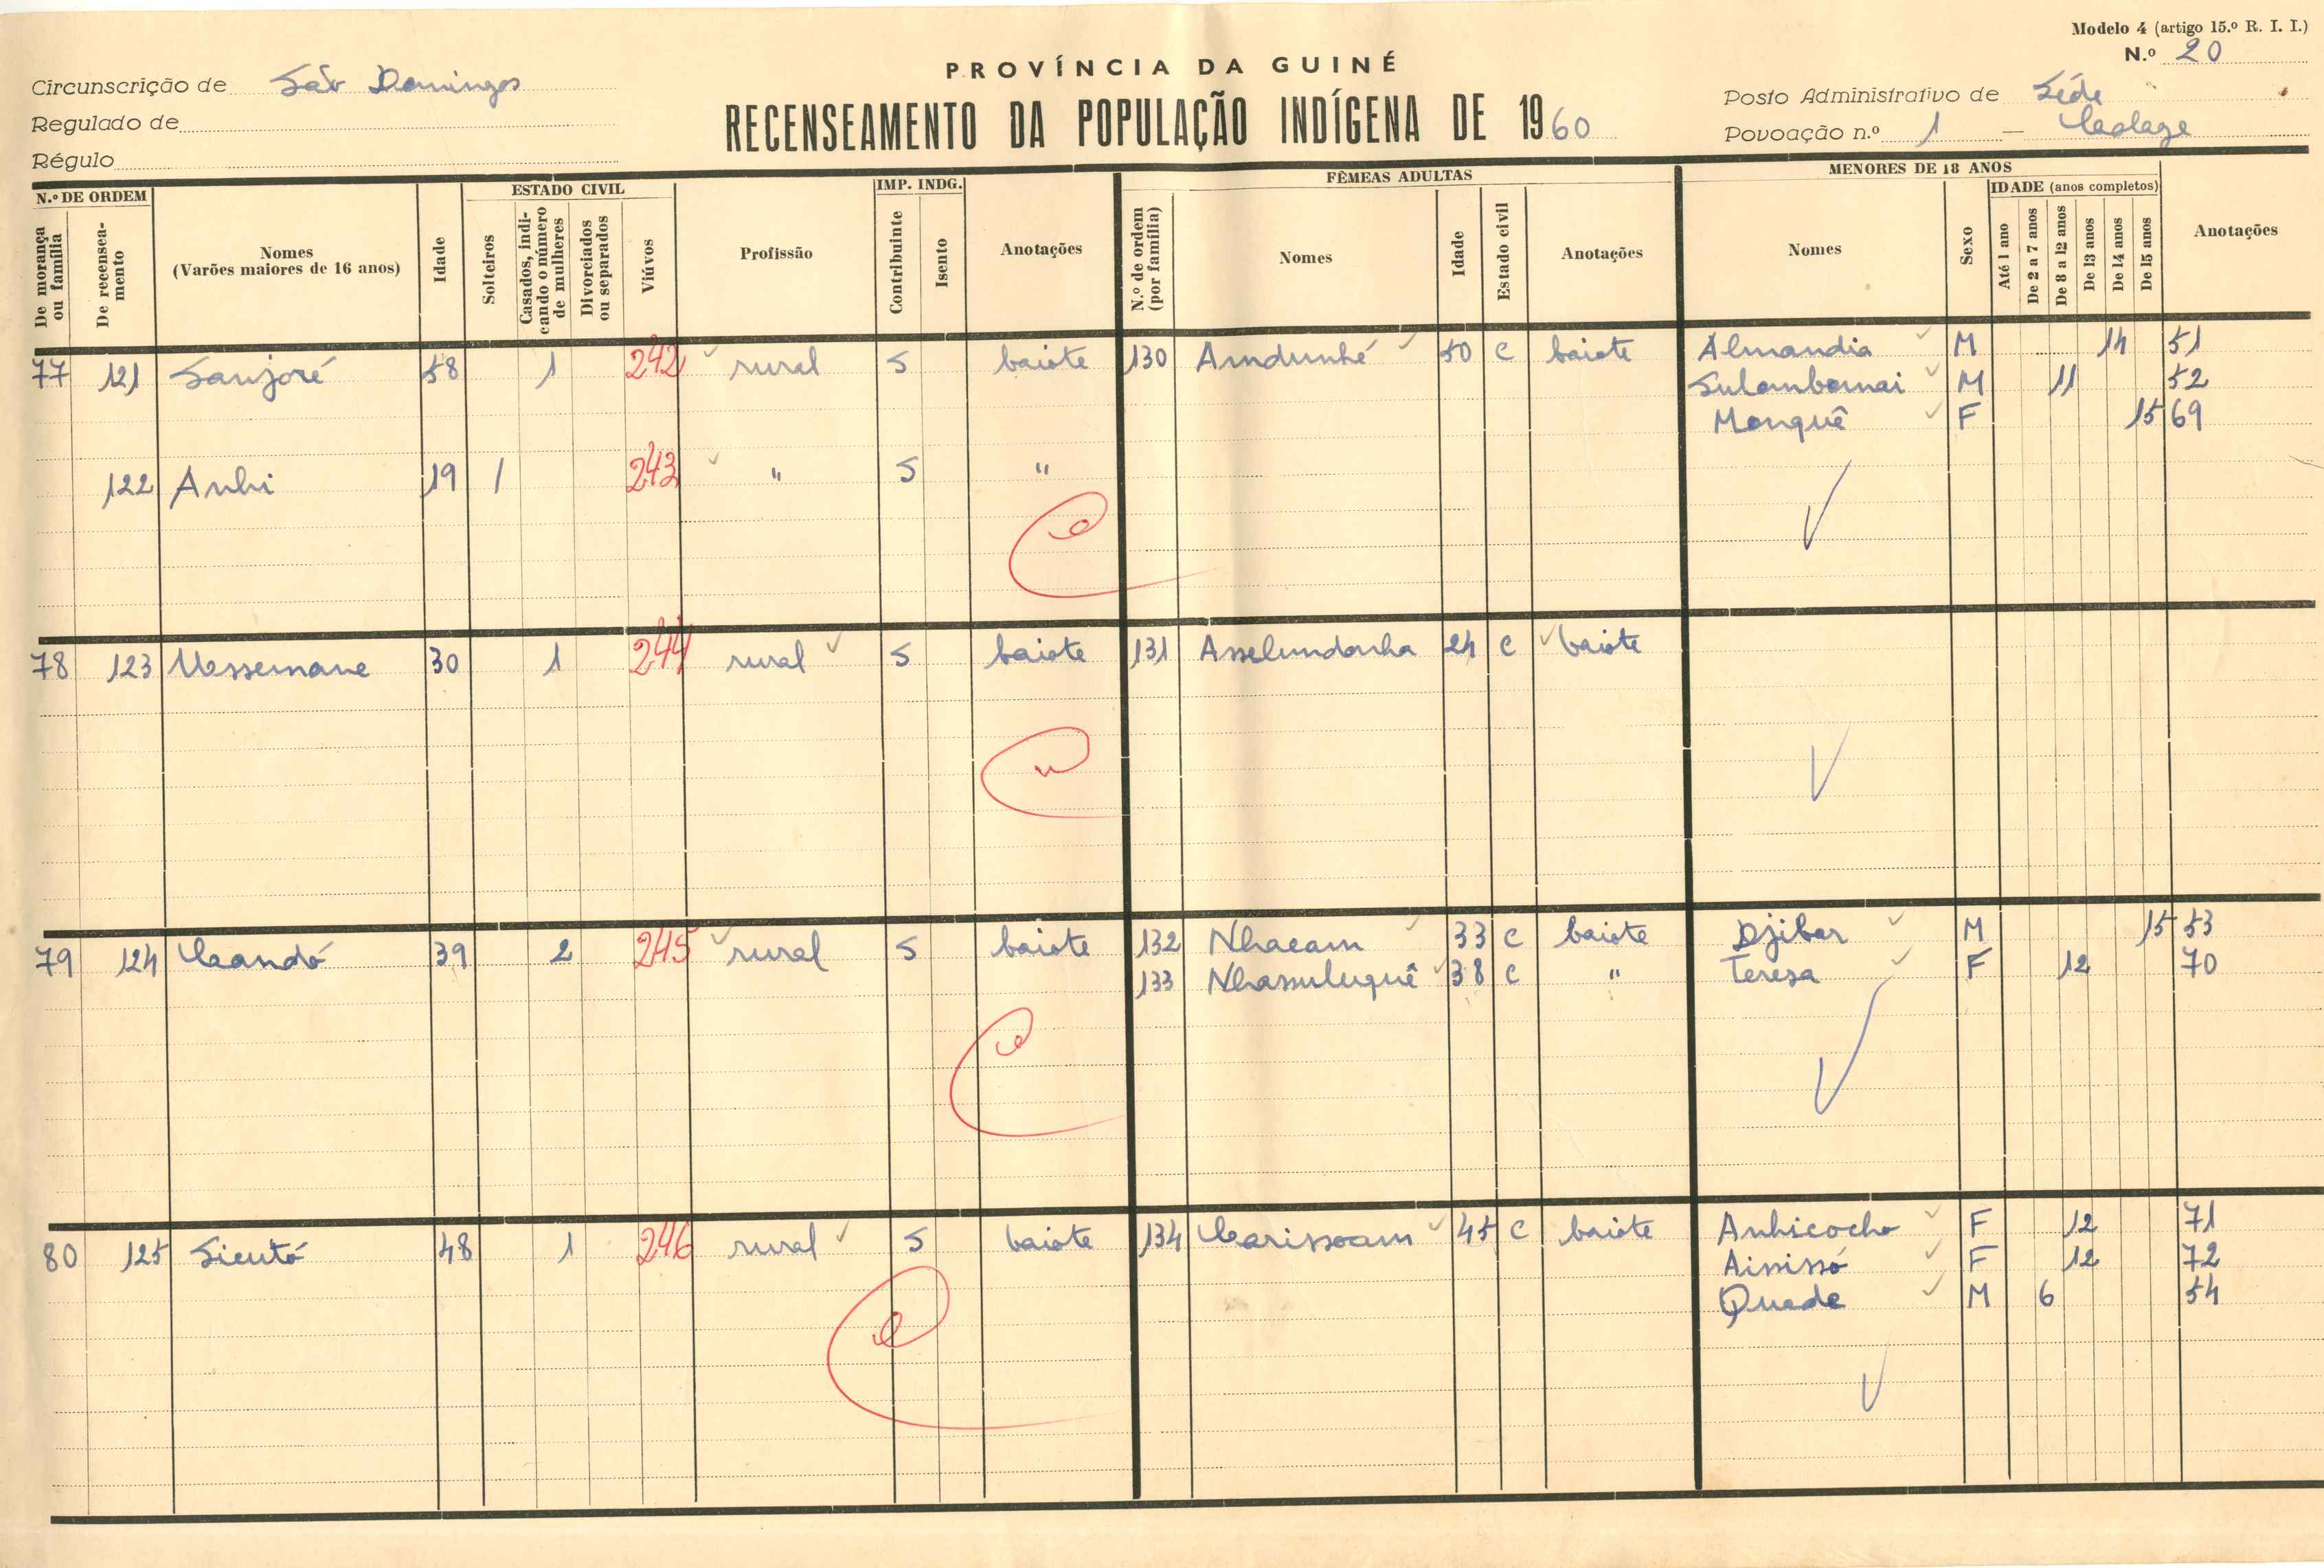 Modelo 4 (artigo 15.º R. I. I.)
N.º 20
PROVÍNCIA DA GUINÉ
RECENSEAMENTO DA POPULAÇÃO INDÍGENA DE 1960
Circunscrição de São Domingos
Regulado de
Régulo
Posto Administrativo de Séde
Povoação n.º 1 —
N.º DE ORDEM
De morança ou família
De recenseamento
Nomes
(Varões maiores de 16 anos)
Idade
ESTADO CIVIL
Solteiros
Casados, indicando o número de mulheres
Divorciados ou separados
Viúvos
Profissão
IMP. INDG.
Contribuinte
Isento
Anotações
FÊMEAS ADULTAS
N.º de ordem (por família)
Nomes
Idade
Estado civil
Anotações
MENORES DE 18 ANOS
Nomes
Sexo
IDADE (anos completos)
Até 1 ano
De 2 a 7 anos
De 8 a 12 anos
De 13 anos
De 14 anos
De 15 anos
Anotações
77 121 Sanjoré 58 1 242 rural S baiote 130 Amdunhé 50 C baiote Almandia M 14 51
Sulambamai M 11 52
Monquê F 15 69
122 Anhi 19 1 243 " S "
78 123 Ussemane 30 1 244 rural S baiote 131 Asselundanha 24 C baiote
79 124 Candó 39 2 245 rural S baiote 132 Nhacam 33 C baiote Djibar M 15 53
133 Nhasuluquê 38 C " Teresa F 12 70
80 125 Sicutó 48 1 246 rural S baiote 134 Carissoam 45 C baiote Anhicocho F 12 71
Aisissó F 12 72
Quade M 6 54